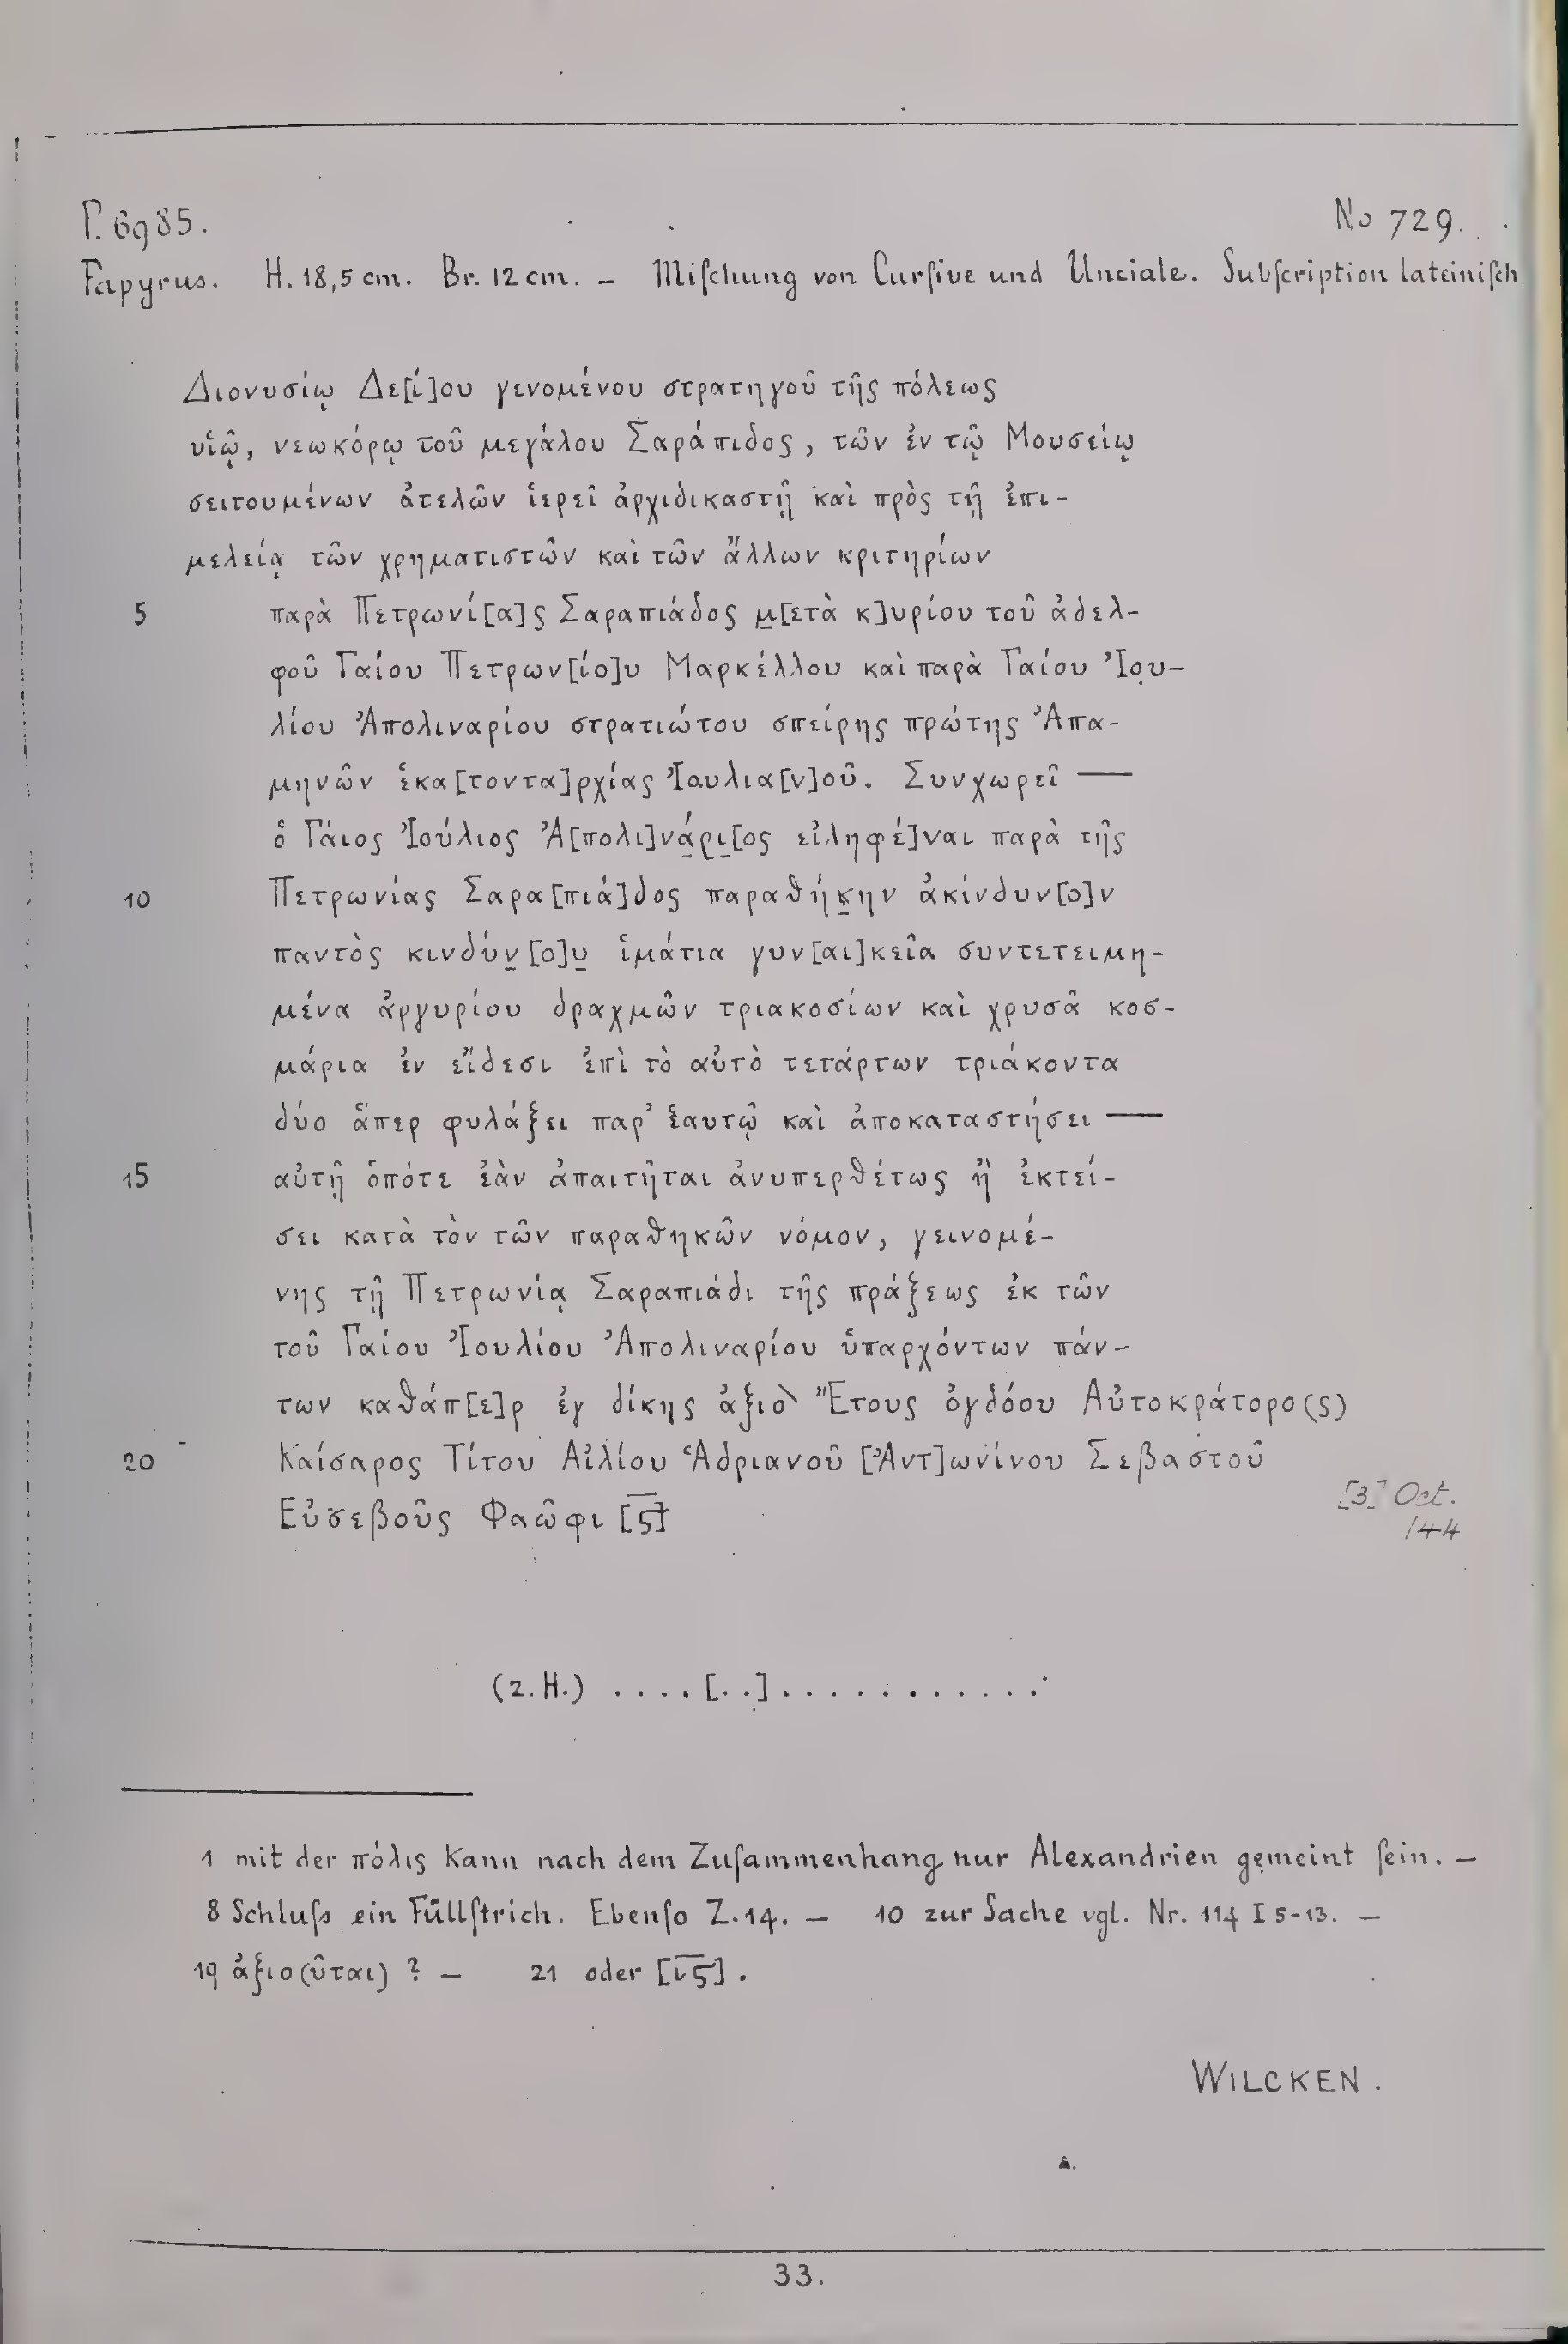 P. 6985. No 729.
Papyrus. H. 18,5 cm. Br. 12 cm. – Miſchung von Curſive und Unciale. Subſcription lateiniſch
Διονυσίῳ Δε[ί]ου γενομένου στρατηγοῦ τῆς πόλεως
υἱῷ, νεωκόρῳ τοῦ μεγάλου Σαράπιδος, τῶν ἐν τῷ Μουσείῳ
σειτουμένων ἀτελῶν ἱερεῖ ἀρχιδικαστῇ καὶ πρὸς τῇ ἐπι-
μελείᾳ τῶν χρηματιστῶν καὶ τῶν ἄλλων κριτηρίων
5 παρὰ Πετρωνί[α]ς Σαραπιάδος μ̲[ετὰ κ]υρίου τοῦ ἀδελ-
φοῦ Γαίου Πετρων[ίο]υ Μαρκέλλου καὶ παρὰ Γαίου Ἰου-
λίου Ἀπολιναρίου στρατιώτου σπείρης πρώτης Ἀπα-
μηνῶν ἑκα[τοντα]ρχίας Ἰουλια[ν]οῦ. Συνχωρεῖ —
ὁ Γάιος Ἰούλιος Ἀ[πολι]νά̲ρι̲[ος εἰληφέ]ναι παρὰ τῆς
10 Πετρωνίας Σαρα[πιά]δος παραθήκ̲ην ἀκίνδυν[ο]ν
παντὸς κινδύν̲[ο]υ̲ ἱμάτια γυν[αι]κεῖα συντετειμη-
μένα ἀργυρίου δραχμῶν τριακοσίων καὶ χρυσᾶ κοσ-
μάρια ἐν εἴδεσι ἐπὶ τὸ αὐτὸ τετάρτων τριάκοντα
δύο ἅπερ φυλάξει παρ’ ἑαυτῷ καὶ ἀποκαταστήσει —
15 αὐτῇ ὁπότε ἐὰν ἀπαιτῆται ἀνυπερθέτως ἢ ἐκτεί-
σει κατὰ τὸν τῶν παραθηκῶν νόμον, γεινομέ-
νης τῇ Πετρωνίᾳ Σαραπιάδι τῆς πράξεως ἐκ τῶν
τοῦ Γαίου Ἰουλίου Ἀπολιναρίου ὑπαρχόντων πάν-
των καθάπ[ε]ρ ἐγ δίκης ἀξιο\ Ἔτους ὀγδόου Αὐτοκράτορο(ς)
20 Καίσαρος Τίτου Αἰλίου Ἁδριανοῦ [Ἀντ]ωνίνου Σεβαστοῦ
Εὐσεβοῦς Φαῶφι [ϛ̅]
[3] Oct.
144
(2. H.) ....[..]...........
1 mit der πόλις kann nach dem Zuſammenhang nur Alexandrien gemeint ſein. –
8 Schluſs ein Füllſtrich. Ebenſo Z. 14. – 10 zur Sache vgl. Nr. 114 I 5-13. –
19 ἀξιο(ῦται) ? – 21 oder [ι̅ϛ̅].
WILCKEN.
33.